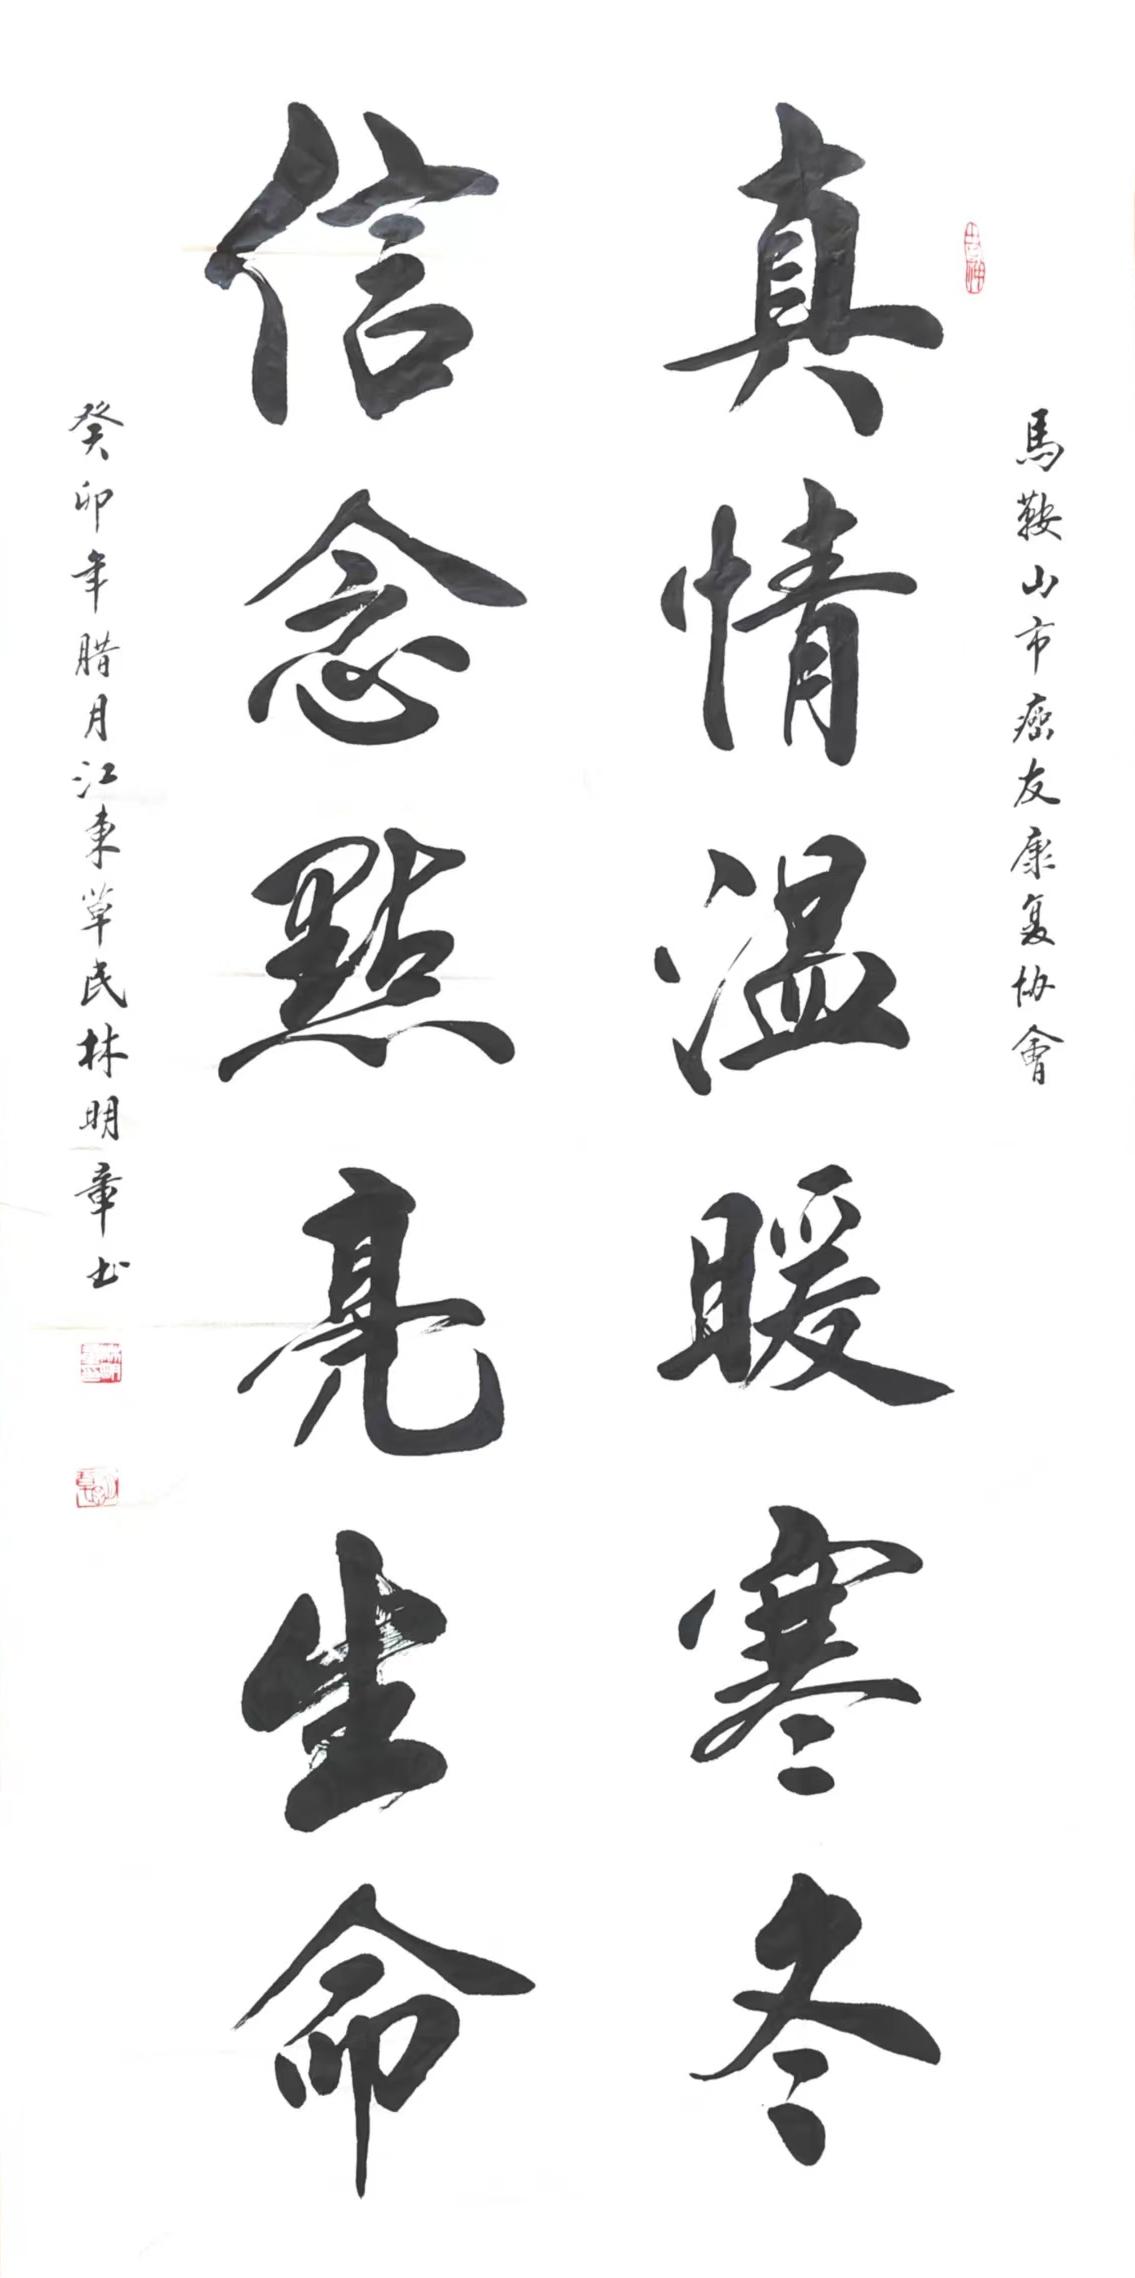 馬鞍山市癌友康复协會
真情温暖寒冬
信念點亮生命
癸卯年腊月江東草民林明章书